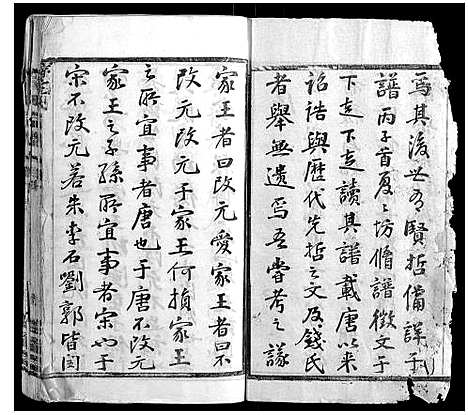 為其後世多賢哲備詳于
譜丙子首夏之坊脩譜徵文于
下走下走讀其譜載唐以来
詔誥與歷代先哲之文及錢氏
者舉無遺焉吾嘗考之議
家王者曰改元愛家王者曰不
改元改元于家王何損家王
之所宜事者唐也于唐不改元
家王之子孫所宜事者宋也于
宋不改元若朱李石劉郭皆閏